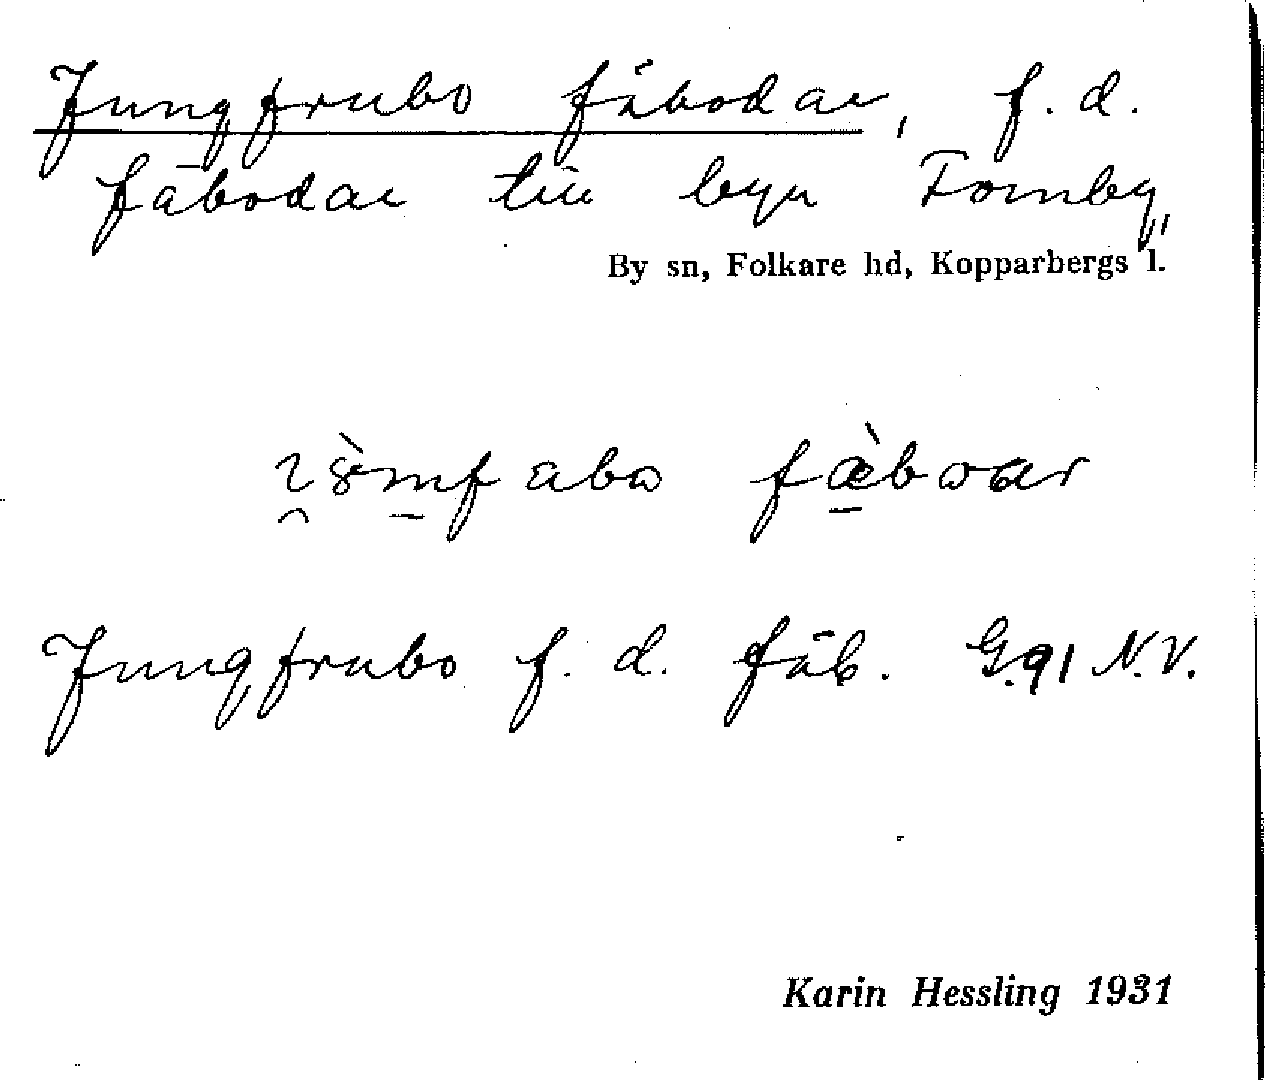 Jungfrubo fäbodar, f.d.
fäbodar till byn Fornby,
By sn, Folkare hd, Kopparbergs l.
fæ̀bωar
Jungfrubo f. d. fäb. G.91 N.V.
Karin Hessling 1931